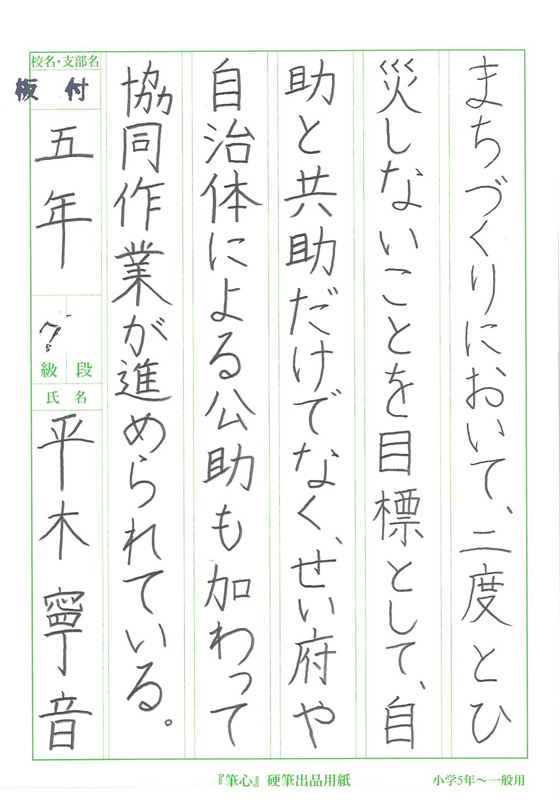 まちづくりにおいて、二度とひ
災しないことを目標として、自
助と共助だけでなく、せい府や
自治体による公助も加わって
協同作業が進められている。
校名・支部名
板付
五年
7
級 段
氏名
平木寧音
『筆心』硬筆出品用紙
小学5年～一般用